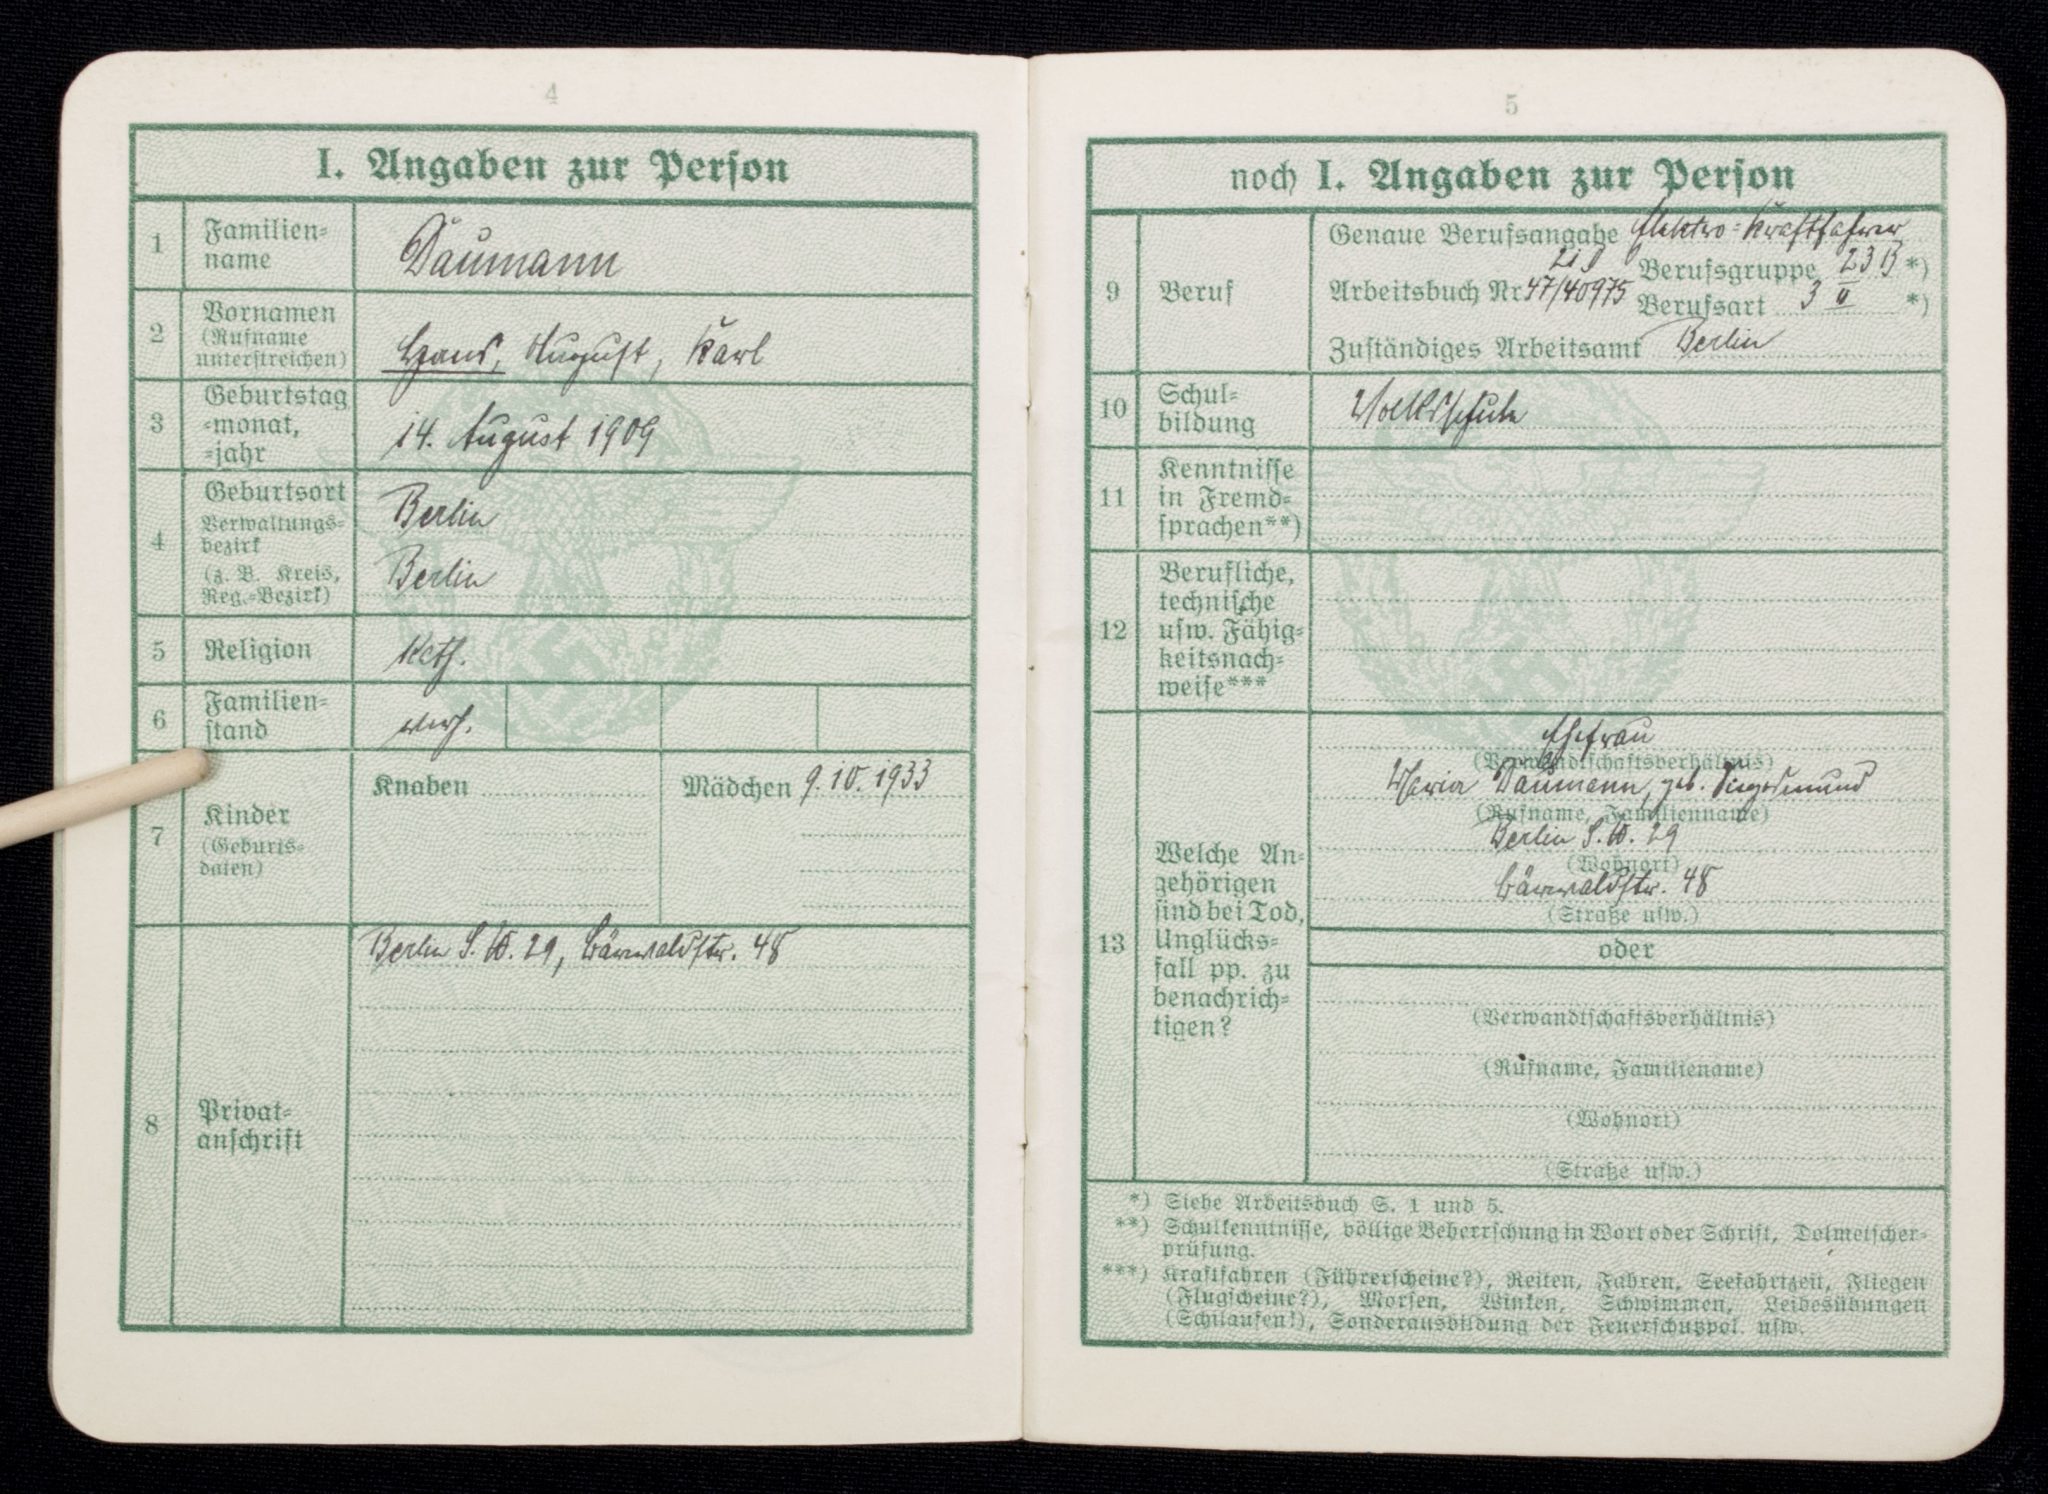 4
I. Angaben zur Person
1
Familien-
name
Daumann
2
Vornamen
(Rufname
unterstreichen)
Hans, August, Karl
3
Geburtstag
-monat,
-jahr
14. August 1909
4
Geburtsort
Verwaltungs-
bezirk
(z. B. Kreis,
Reg.-Bezirk)
Berlin
Berlin
5
Religion
Kath.
6
Familien-
stand
verh.
7
Kinder
(Geburts-
daten)
Knaben
Mädchen 9.10.1933
8
Privat-
anschrift
Berlin S.W. 29, Bärwaldstr. 48
5
noch I. Angaben zur Person
9
Beruf
Genaue Berufsangabe Elektro-Kraftfahrer
Berufsgruppe 23 B *)
Arbeitsbuch Nr 47/40975
Berufsart 3 *)
Zuständiges Arbeitsamt Berlin
10
Schul-
bildung
Volksschule
11
Kenntnisse
in Fremd-
sprachen**)
12
Berufliche,
technische
usw. Fähig-
keitsnach-
weise***
13
Welche An-
gehörigen
sind bei Tod,
Unglücks-
fall pp. zu
benachrich-
tigen?
Ehefrau
(Verwandtschaftsverhältnis)
Maria Daumann, geb. Siegesmund
(Rufname, Familienname)
Berlin S.W. 29
(Wohnort)
Bärwaldstr. 48
(Straße usw.)
oder
(Verwandtschaftsverhältnis)
(Rufname, Familiename)
(Wohnort)
(Straße usw.)
*) Siehe Arbeitsbuch S. 1 und 5.
**) Schulkenntnisse, völlige Beherrschung in Wort oder Schrift, Dolmetscher-
prüfung.
***) Kraftfahren (Führerscheine?), Reiten, Fahren, Seefahrtzeit, Fliegen
(Flugscheine?), Morsen, Winken, Schwimmen, Leibesübungen
(Schilaufen!), Sonderausbildung der Feuerschutzpol. usw.